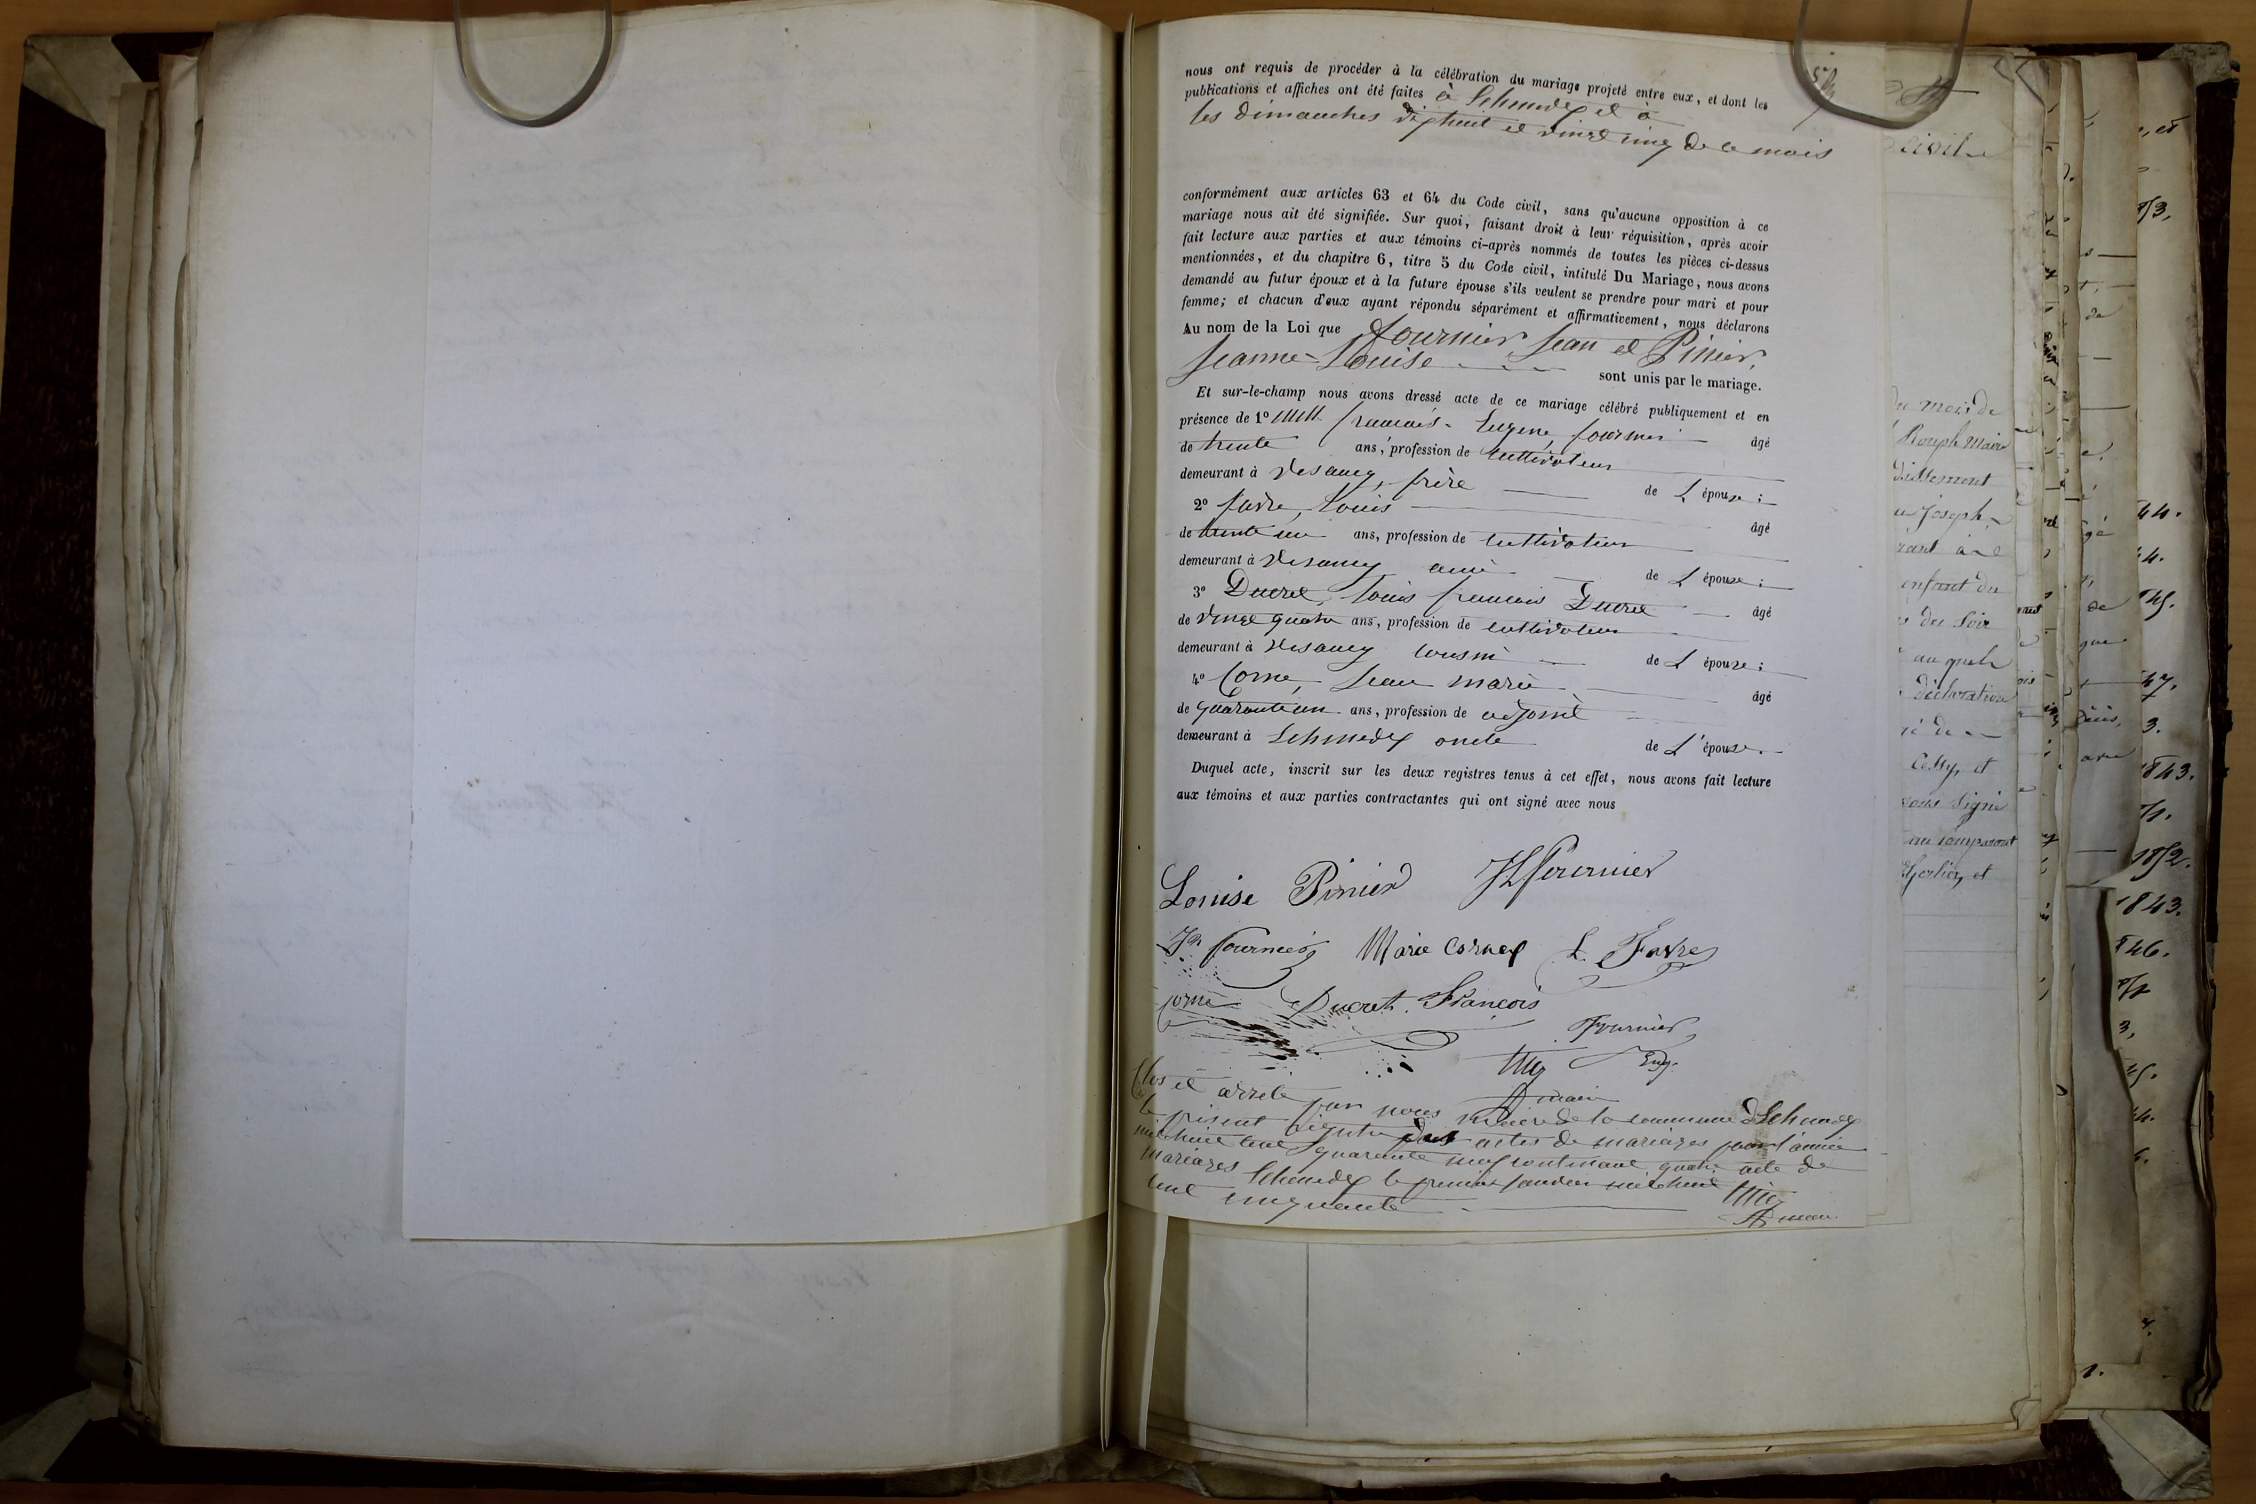 nous ont requis de procéder à la célébration du mariage projeté entre eux, et dont les
publications et affiches ont été faites à Echenevex et à
les dimanches dixhuit et vingt cinq de ce mois
conformément aux articles 63 et 64 du Code civil, sans qu'aucune opposition à ce
mariage nous ait été signifiée. Sur quoi, faisant droit à leur réquisition, après avoir
fait lecture aux parties et aux témoins ci-après nommés de toutes les pièces ci-dessus
mentionnées, et du chapitre 6, titre 5 du Code civil, intitulé Du Mariage, nous avons
demandé au futur époux et à la future épouse s'ils veulent se prendre pour mari et pour
femme; et chacun d'eux ayant répondu séparément et affirmativement, nous déclarons
Au nom de la Loi que Fournier Jean et Pinier,
Jeanne-Louise
sont unis par le mariage.
Et sur-le-champ nous avons dressé acte de ce mariage célébré publiquement et en
présence de 1° francois-Eugene, fournier âgé
de trente ans, profession de cultivateur
demeurant à Vesancy, frère de L époux;
2° favre, Louis âgé
de trente un ans, profession de cultivateur
demeurant à Vesancy ami de L épouse;
3° Ducret, Louis francois Ducret âgé
de vingt quatre ans, profession de cultivateur
demeurant à Vesancy cousin de L épouse;
4° Corne, Jean marie âgé
de quarante un ans, profession de adjoint
demeurant à Echenevex oncle de L'épouse
Duquel acte, inscrit sur les deux registres tenus à cet effet, nous avons fait lecture
aux témoins et aux parties contractantes qui ont signé avec nous
Louise Pinier JLfournier
fournier Marie Cornex L. Favre
Corne Ducret François
Fournier
Eug.
maire
Clos et arrete par nous maire de la commune d'Echenevex
le présent registre des actes de mariages pour l'année
mil huit cent quarante neuf contenant quatre acte de
mariages Echenevex le premier Janvier mil huit
cent cinquante
maire
civil
du mois de
maire
Joseph
enfant du
du soir
déclaration
Cessy, et
et
1843.
1852.
1843.